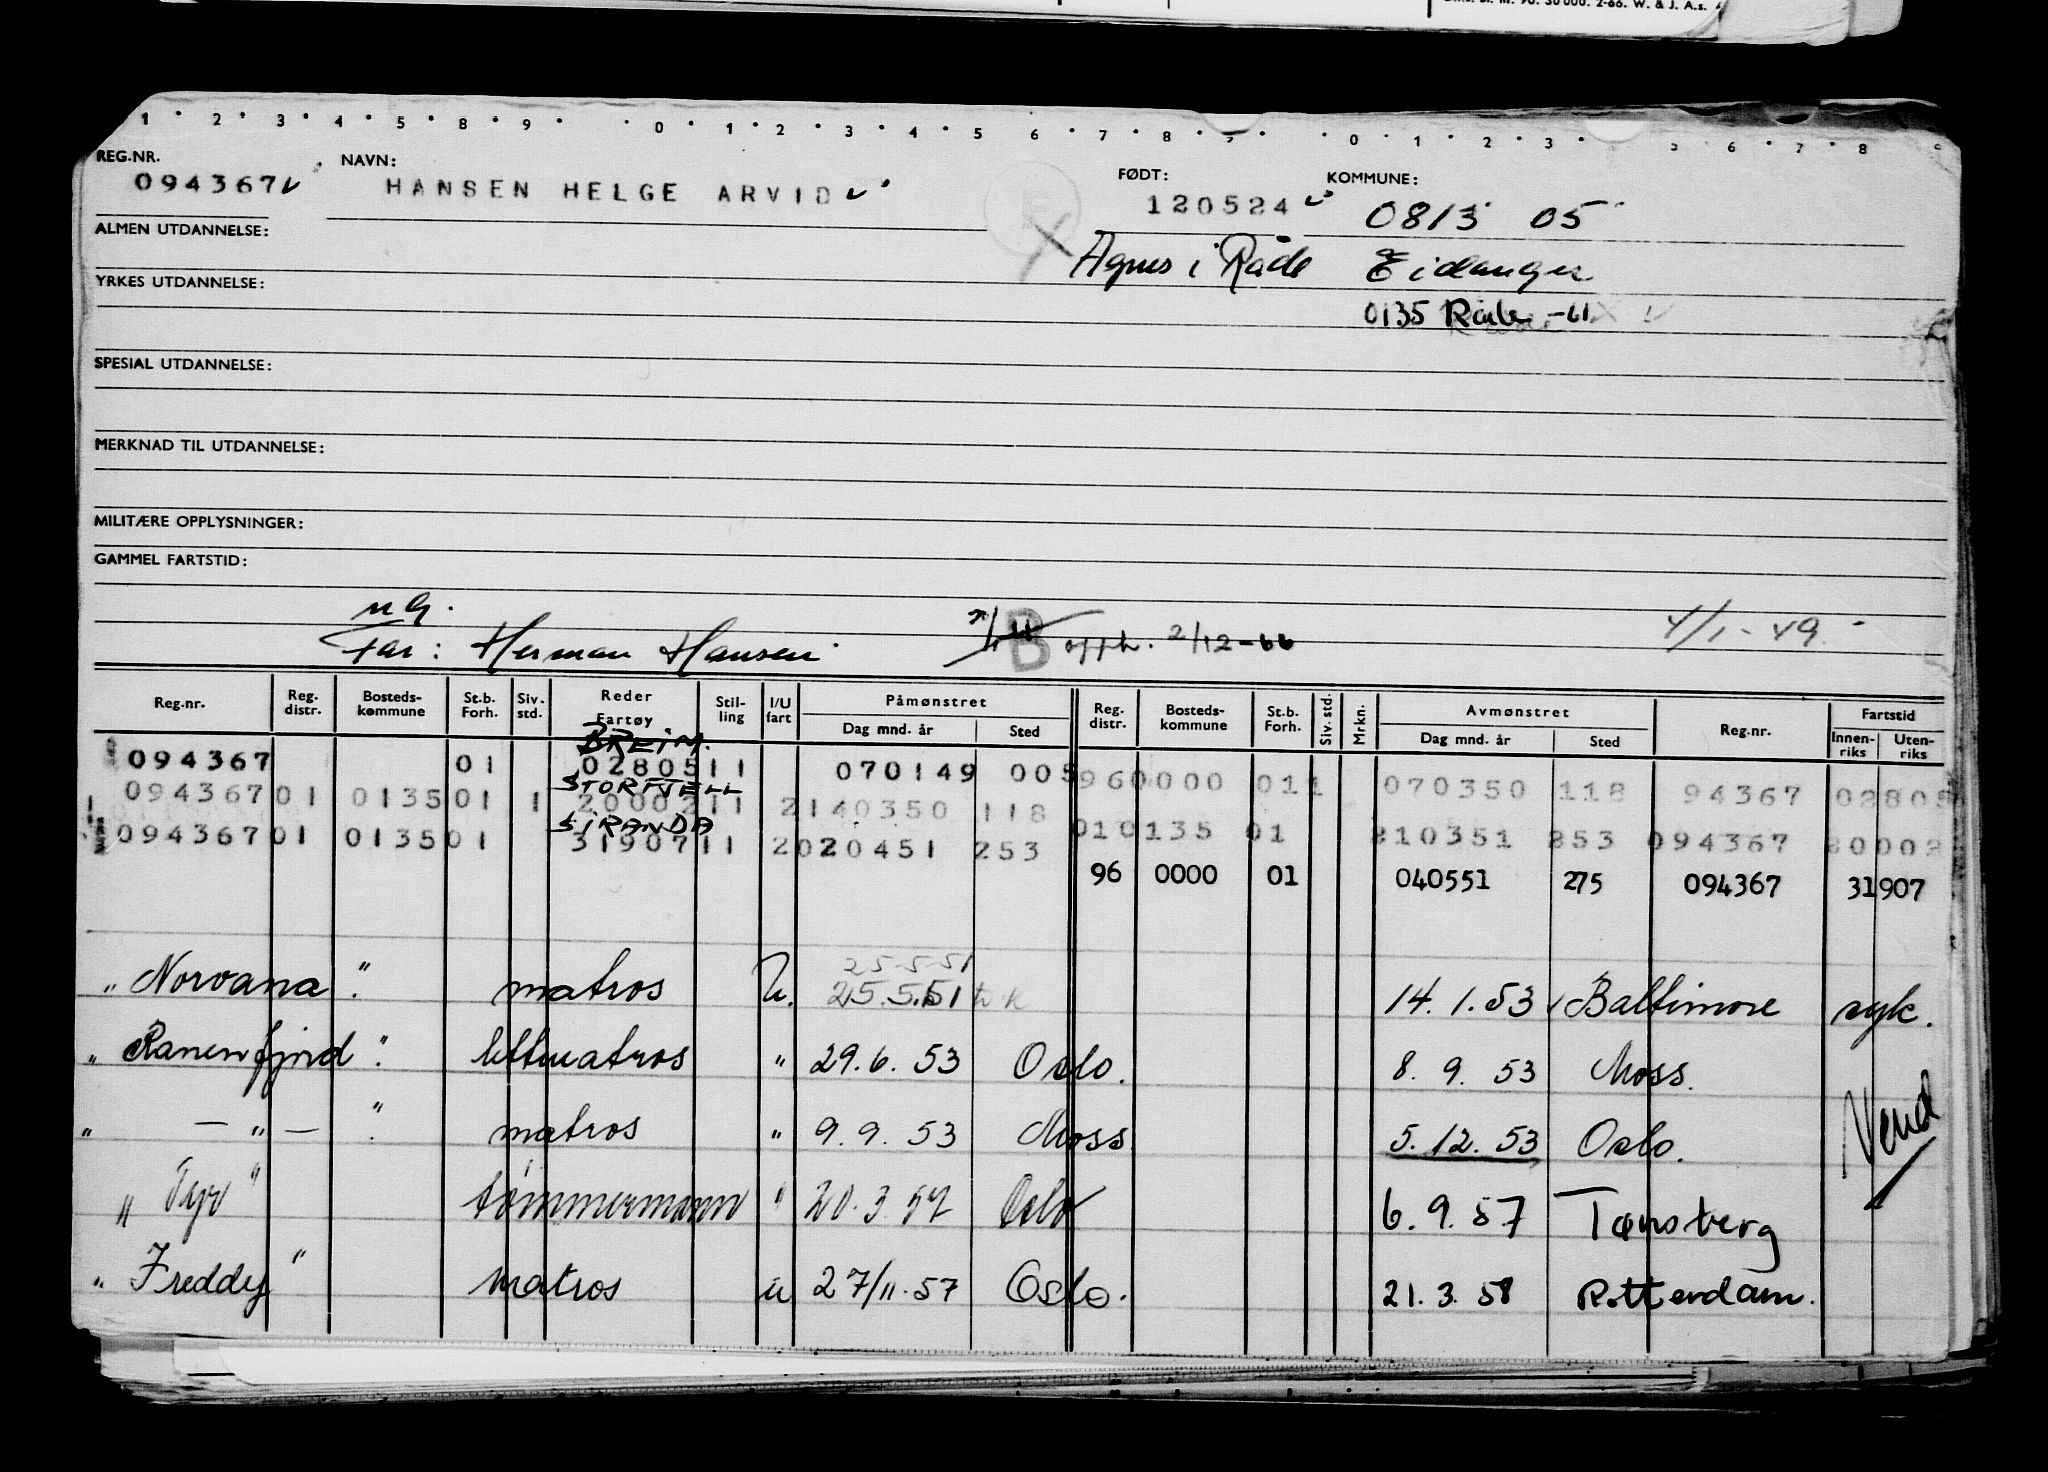 30 000. 2-66. W. & J. A.s.
1 2 3 4 5 8 9 0 1 2 3 4 5 6 7 8 9 0 1 2 3 5 6 7 8
REG.NR. NAVN: FØDT: KOMMUNE:
094367 HANSEN HELGE ARVID 120524 0813 05
ALMEN UTDANNELSE: Agnes i Råde Eidanger
YRKES UTDANNELSE: 0135 Råde -61
SPESIAL UTDANNELSE:
MERKNAD TIL UTDANNELSE:
MILITÆRE OPPLYSNINGER:
GAMMEL FARTSTID:
Far: Herman Hansen B opph. 2/12-66 4/1-49
Reg.nr. Reg. distr. Bosteds-kommune St.b. Forh. Siv. std. Reder Fartøy Stil-ling I/U fart Påmønstret Dag mnd. år Sted Reg. distr. Bosteds-kommune St.b. Forh. Siv. std. Mrkn. Avmønstret Dag mnd. år Sted Reg.nr. Fartstid Innen-riks Uten-riks
BREIM.
094367 01 02805 11 070149 005 96 0000 011 070350 118 94367 02805
STORFJELL
094367 01 0135 01 1 20002 11 2 140350 118 01 0135 01 210351 253 094367 20002
SIRANDA
094367 01 0135 01 31907 11 2 020451 253 96 0000 01 040551 275 094367 31907
25-5-51
" Norvana " matros U. 25.5.51 14.1.53 Baltimore syk.
" Ranenfjord " lettmatros " 29.6.53 Oslo. 8.9.53 Moss.
" — " — " matros " 9.9.53 Moss 5.12.53 Oslo. Vend
" Tyr " tømmermann " 20.3.57 Oslo 6.9.57 Tønsberg
" Freddy " matros u 27/11.57 Oslo. 21.3.58 Rotterdam.